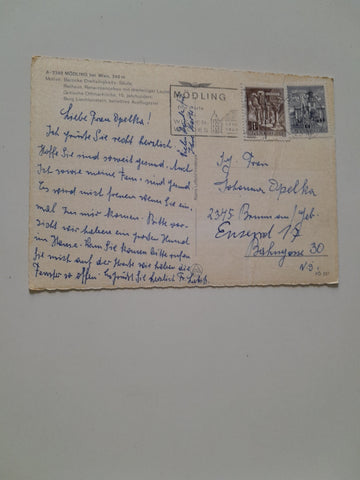 A-2340 MÖDLING bei Wien, 240 m
Motive: Barocke Dreifaltigkeits-Säule,
Rathaus, Renaissancebau mit
Gotische Othmarkirche, 15. Jahrhundert
Burg Liechtenstein, beliebtes Ausflugsziel
MÖDLING
Liebe Frau Opelka!
Ich grüße Sie recht herzlich.
Hoffe Sie sind soweit gesund. Auch
Ich sowie meine Fam. sind gesund
Es würd mich freuen wenn Sie ein-
mal zu mir kommen. Bitte vor-
sicht wir haben ein großen Hund
im Hause. Kommen Sie können bitte rufen
Sie mich auf der Straße wir haben die
Fenster so offen. Es grüßt Sie herzlich Fr.
Frau
Johanna Opelka
2345 Brunn am / Geb.
Enzersd
Bahngasse 30
N.Ö.